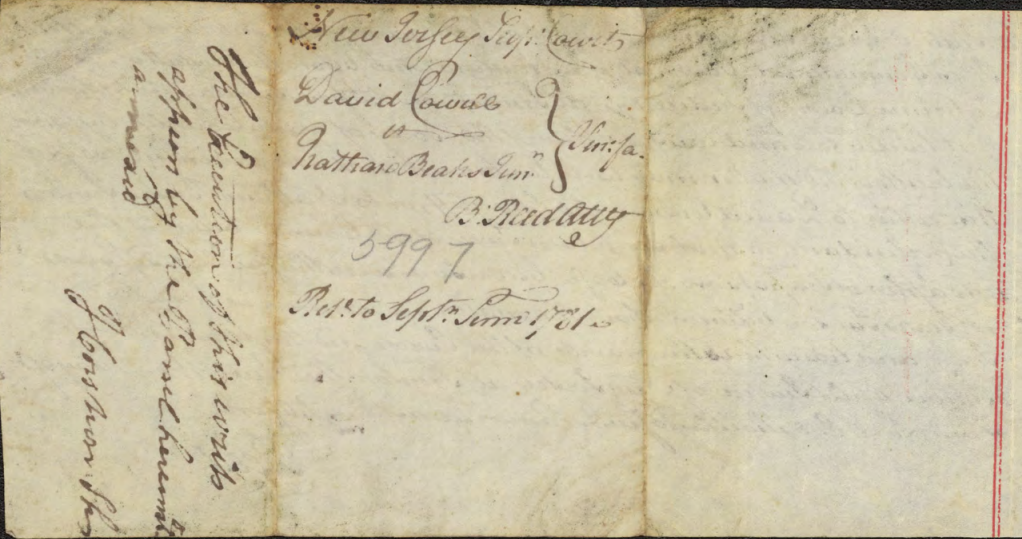 New Jersey Supm Court
David Cowell
vs
Nathan Beaks Junr
Ven: fa.
B: Reed Atty
5997
Retd to Septr Term 1781
The Execution of this writ
appears by the Panel hereunto
annexed